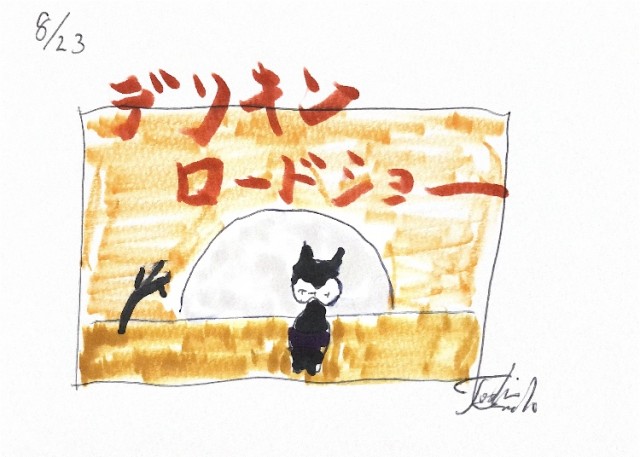 8/23
デリキン
ロードショー